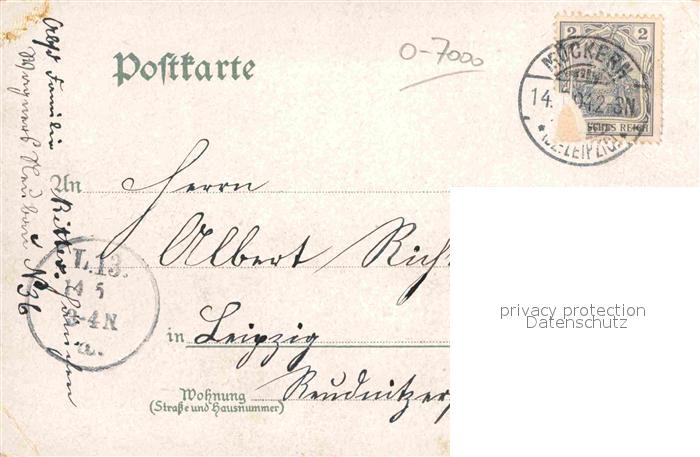 Postkarte
0-7000
2 2
MÖCKERN
14. 2-3N
SCHES REICH
* (BZ. LEIPZIG) *
An Herrn
Albert Rich
in Leipzig
Wohnung
(Straße und Hausnummer)
Reudnitzer
L.13.
14 5
3-4N
a.
Familie Ritter.
Neubau N 36
privacy protection
Datenschutz